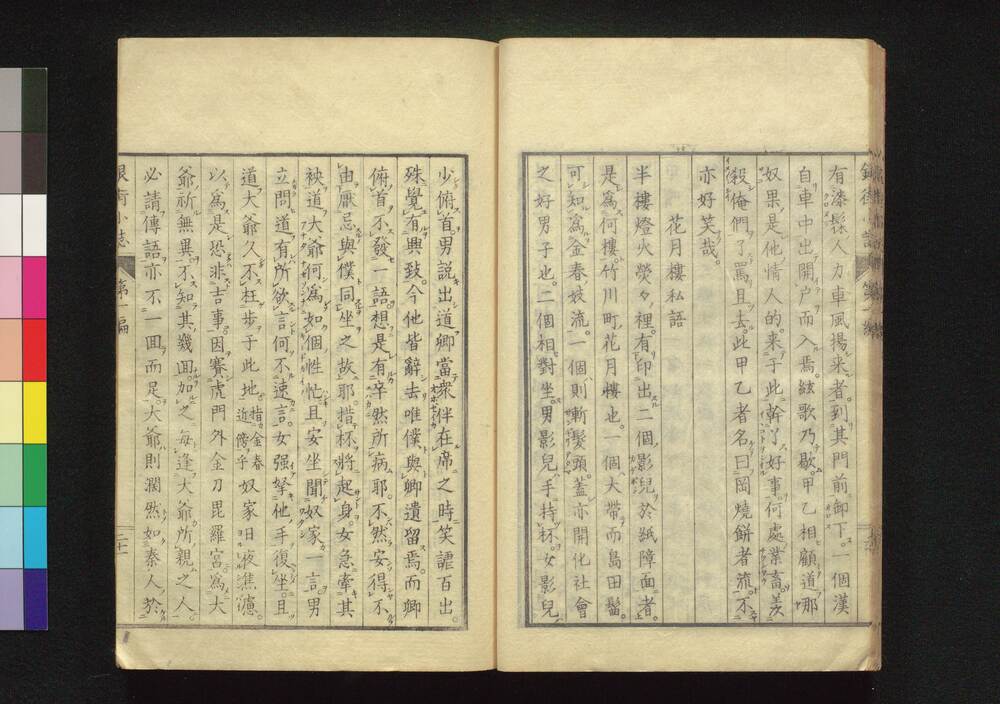 有漆髹人力車風揚来者到其門前卸下一個漢
自車中出開户而入焉絃歌乃歇甲乙相顧道哪
奴果是他情人的来于此幹了好事何處業畜羨
殺俺們了罵且去此甲乙者名曰岡燒餅者流不
亦好笑哉。
花月樓私語
半樓燈火熒々裡有印出二個影兒於紙障面者
是爲何樓竹川町花月樓也一個大帶而島田髷
可知爲金春妓流一個則斬髮頭蓋亦開化社會
之好男子也二個相對坐男影兒手持杯女影兒
少俯首男説出道卿當衆伴在席之時笑謔百出
殊覺有興致今他皆辭去唯僕與卿遺留焉而卿
俯首不發一語想是有卒然所病耶不然安得不
由厭忌與僕同坐之故耶措杯將起身女急牽其
袂道大爺何爲如個性忙且安坐聞奴家一言男
立問道有所欲言何不速言女强拏他手復坐且
道大爺久不枉歩于此地指金春近傍乎奴家旧夜焦慮
以爲是恐非吉事因賽虎門外金刀毘羅宮爲大
爺祈無異不知其幾囬加之毎逢大爺所親之人
必請傳語亦不一囬而足大爺則濶然如秦人於
銀街小誌 第一編 二十一